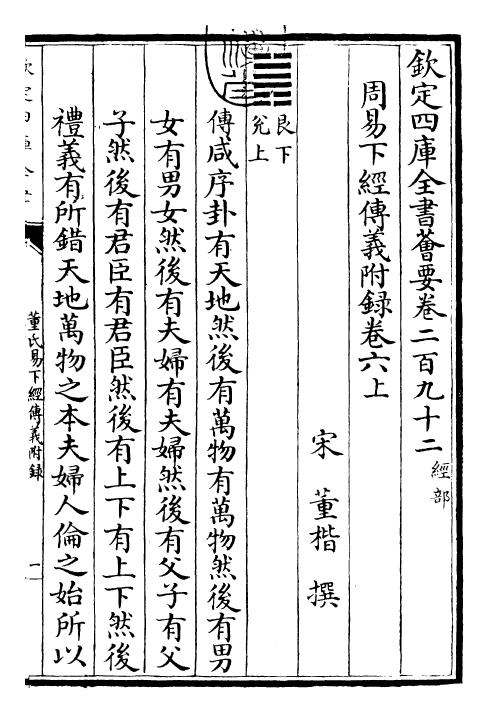 欽定四庫全書薈要卷二百九十二 經部
周易下經傳義附録卷六上
宋 董楷 撰
艮下
兊上
傳咸序卦有天地然後有萬物有萬物然後有男
女有男女然後有夫婦有夫婦然後有父子有父
子然後有君臣有君臣然後有上下有上下然後
禮義有所錯天地萬物之本夫婦人倫之始所以
欽定四庫全書
董氏易下經傳義附録
一